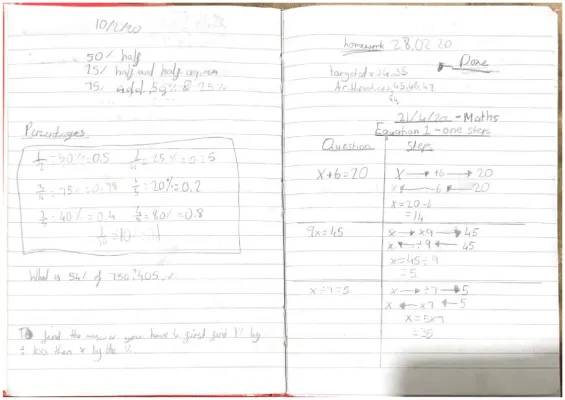 10/2/20
50% half
25% half and half again
75% add 50% & 25%
Percentages
1/2 = 50% = 0.5 1/4 = 25% = 0.25
3/4 = 75% = 0.75 1/5 = 20% = 0.2
2/5 = 40% = 0.4 4/5 = 80% = 0.8
1/10 = 10%
What is 54% of 750? 405
To find the answer you have to first find 1% by
÷ 100 then x by the %.
homework 28.02.20
Done
targeted = 34,35
45,46,47
21/4/20 - Maths
Equation 1 - one step
Question Step
x+6=20 x → +6 → 20
x ← -6 ← 20
x = 20-6
= 14
9x=45 x → x9 → 45
x ← ÷9 ← 45
x = 45 ÷ 9
= 5
x ÷ 7 = 5 x → ÷7 → 5
x ← x7 ← 5
x = 5x7
= 35